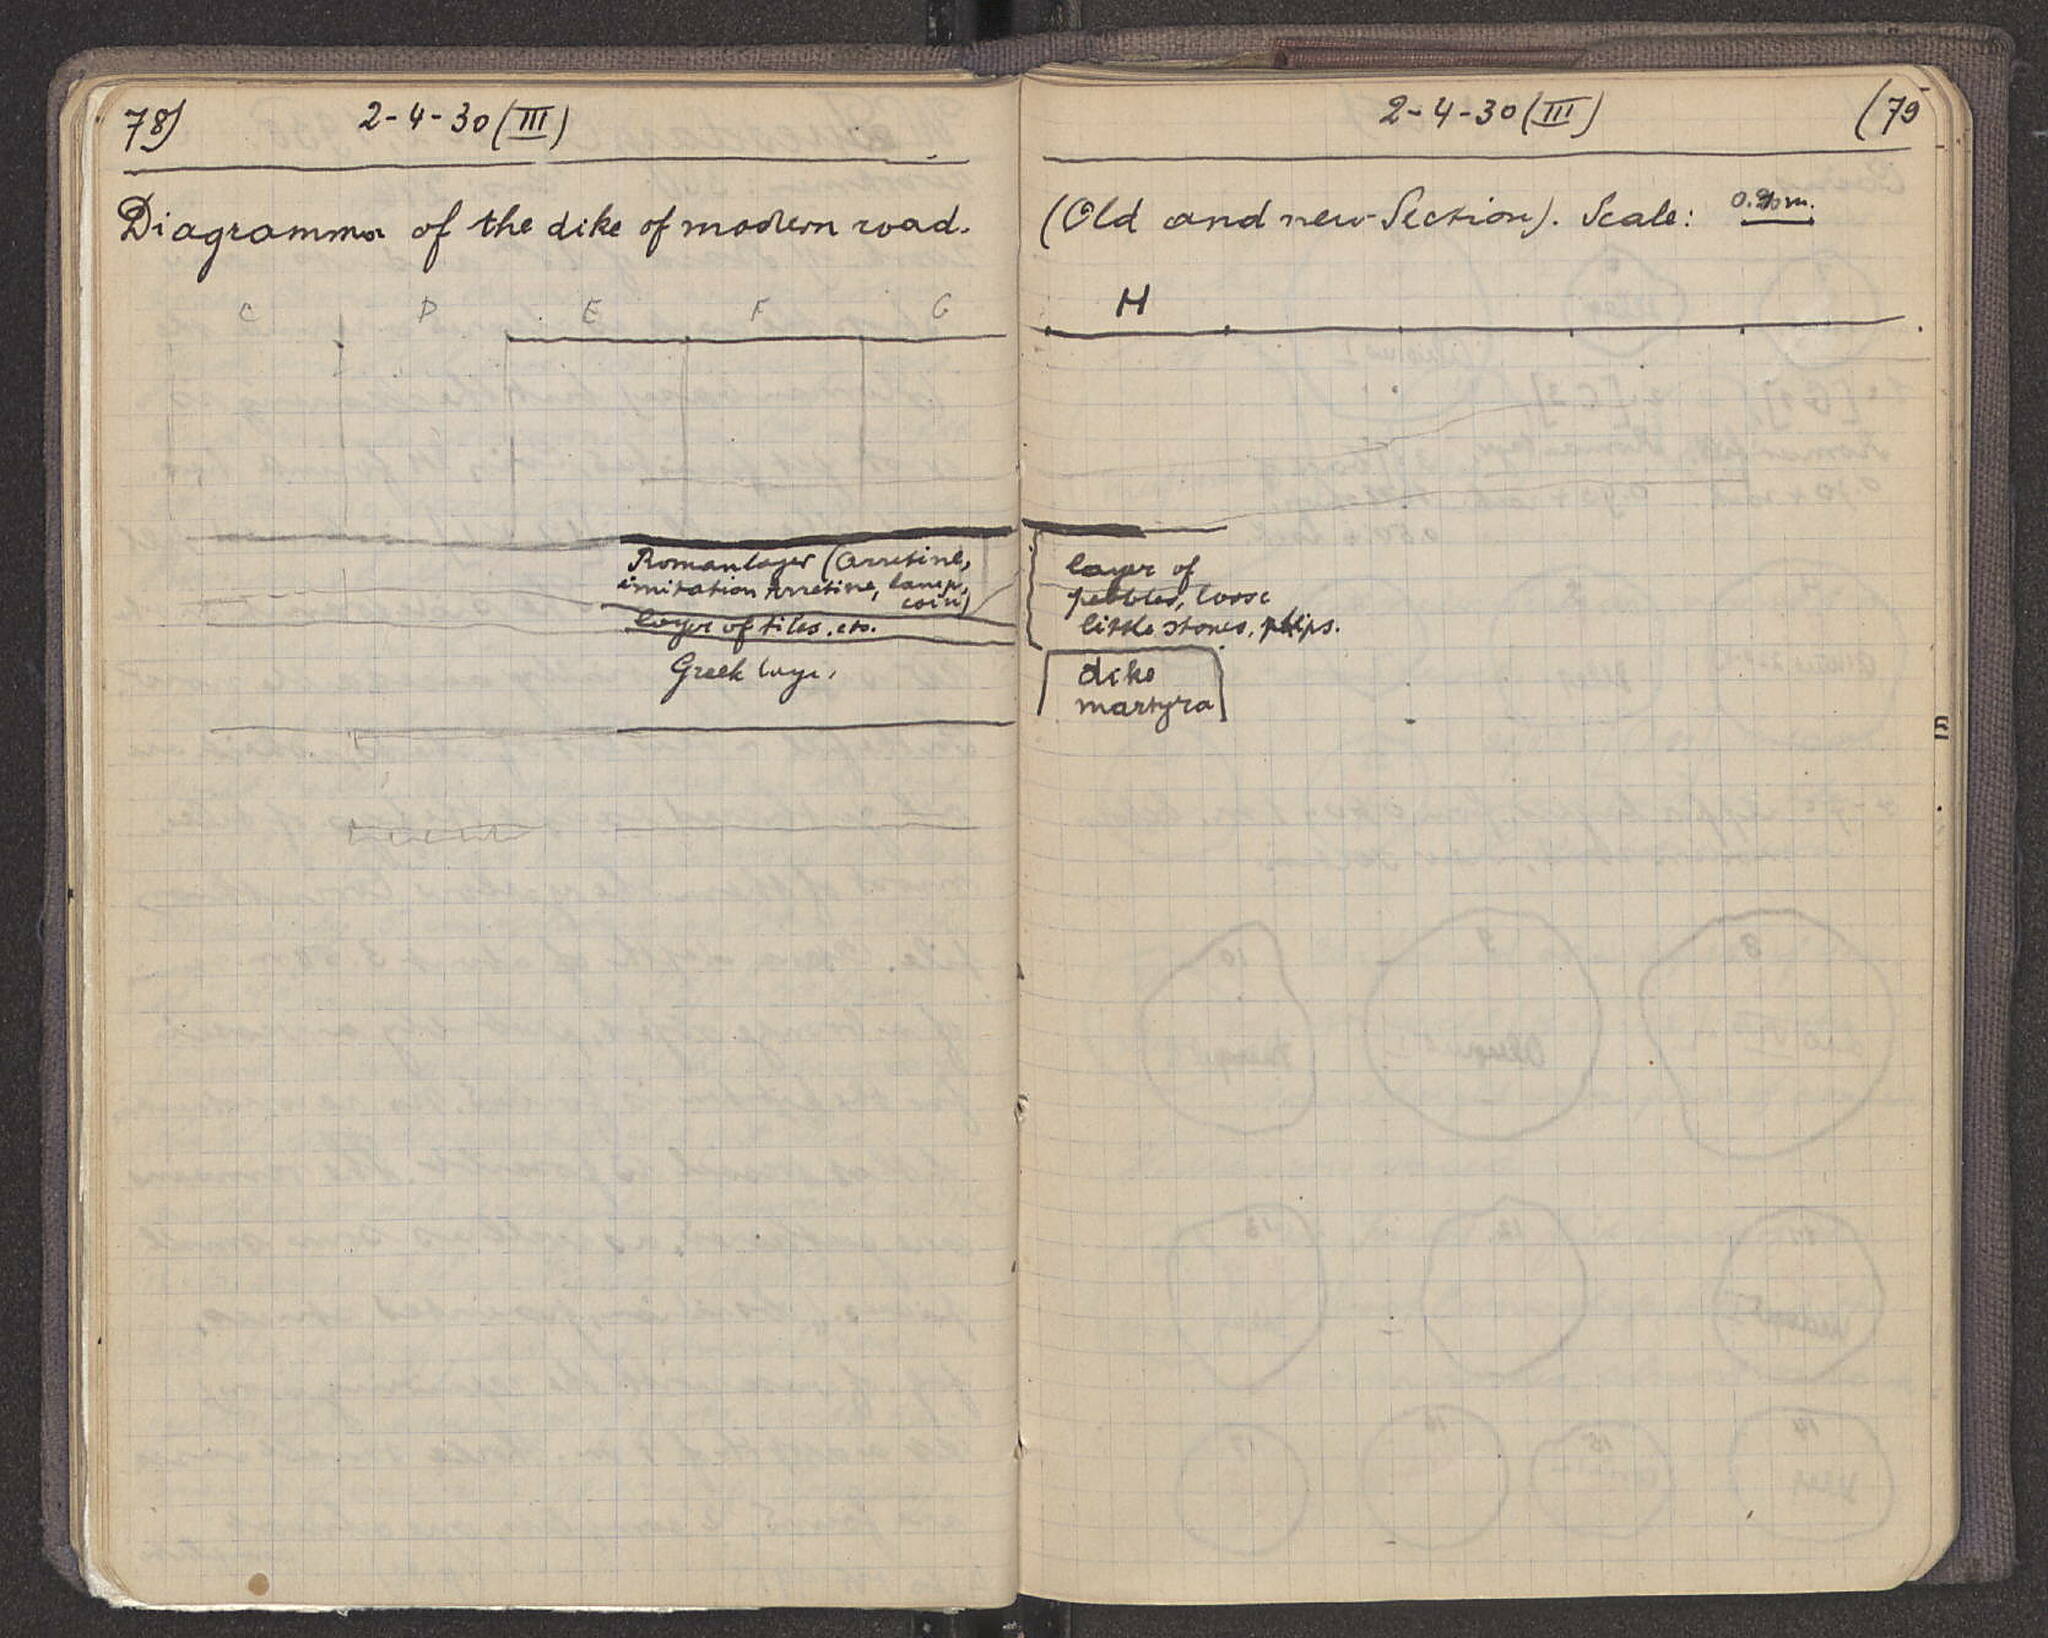 78)
2-4-30 (III)
Diagramma of the dike of modern road.
C D E F G
Roman layer (Arretine,
imitation Arretine, lamp,
coin)
layer of tiles, etc.
Greek laye.
2-4-30 (III)
(79
(Old and new Section). Scale:
H
layer of
pebbles, loose
little stones,
dike
martyra